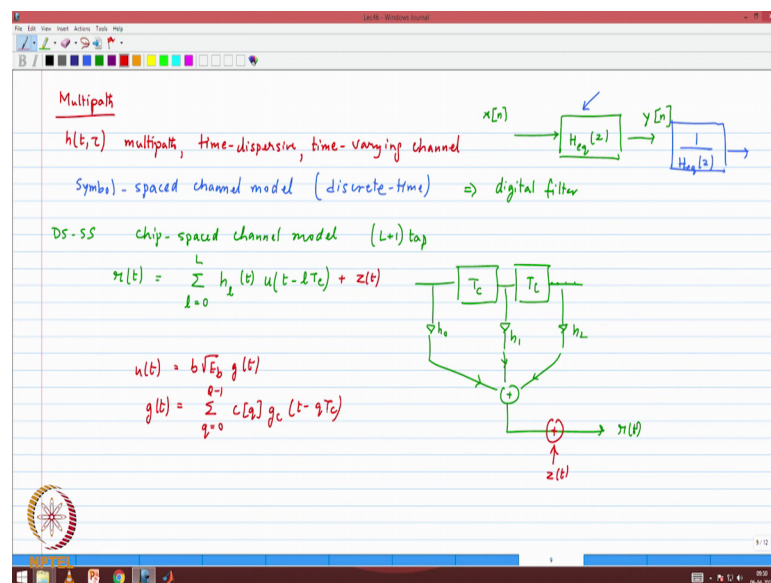 Lec46 - Windows Journal
File Edit View Insert Actions Tools Help
Multipath
h(t,τ) multipath, time-dispersive, time-varying channel
Symbol-spaced channel model (discrete-time) => digital filter
x[n]
H_eq(z)
y[n]
1 / H_eq(z)
DS-SS chip-spaced channel model (L+1) tap
r(t) = Σ_{l=0}^{L} h_l(t) u(t-lT_c) + z(t)
T_c
T_c
h_0
h_1
h_L
+
+
r(t)
z(t)
u(t) = b√E_b g(t)
g(t) = Σ_{q=0}^{Q-1} c[q] g_c(t-qT_c)
NPTEL
9/12
9
09:50